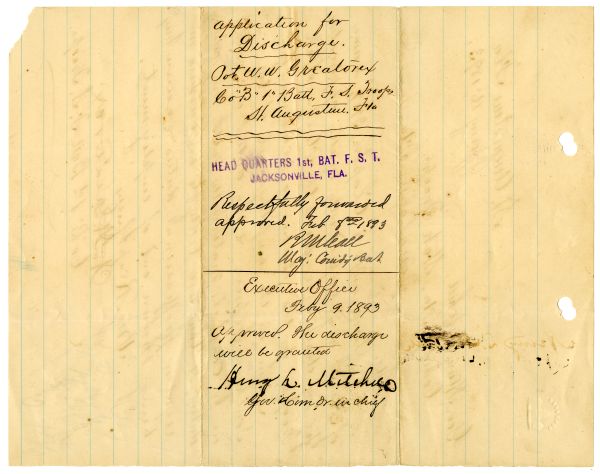 Application for
Discharge.
Pvt. W. W. Greatorex
Co "B" 1st Batt. F. S. Troops
St. Augustine, Fla
HEAD QUARTERS 1st, BAT. F. S. T.
JACKSONVILLE, FLA.
Respectfully forwarded
approved. Feb 8th 1893
Maj: Comdg Bat
Executive Office
Feby 9. 1893
Approved. The discharge
will be granted
Henry L. Mitchell
Gov. & Com Dr. in chief